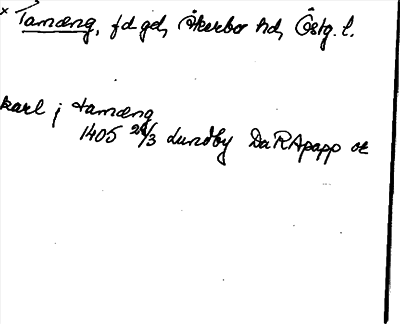 × Tamæng, fd gd, Åkerbo hd, Östg. l.
karl j tamæng
1405 24/3 Lundby DaRApapp or